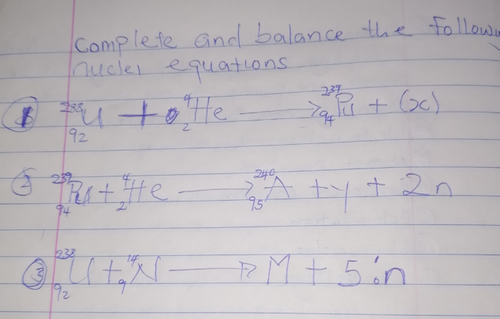 Complete and balance the follow
nuclei equations
1 ²³⁸₉₂U + ⁴₂He → ²³⁹₉₄Pu + (x)
2 ²³⁹₉₄Pu + ⁴₂He → ²⁴⁰₉₅A + y + 2n
3 ²³⁸₉₂U + ¹⁴₉N → M + 5 ¹₀n